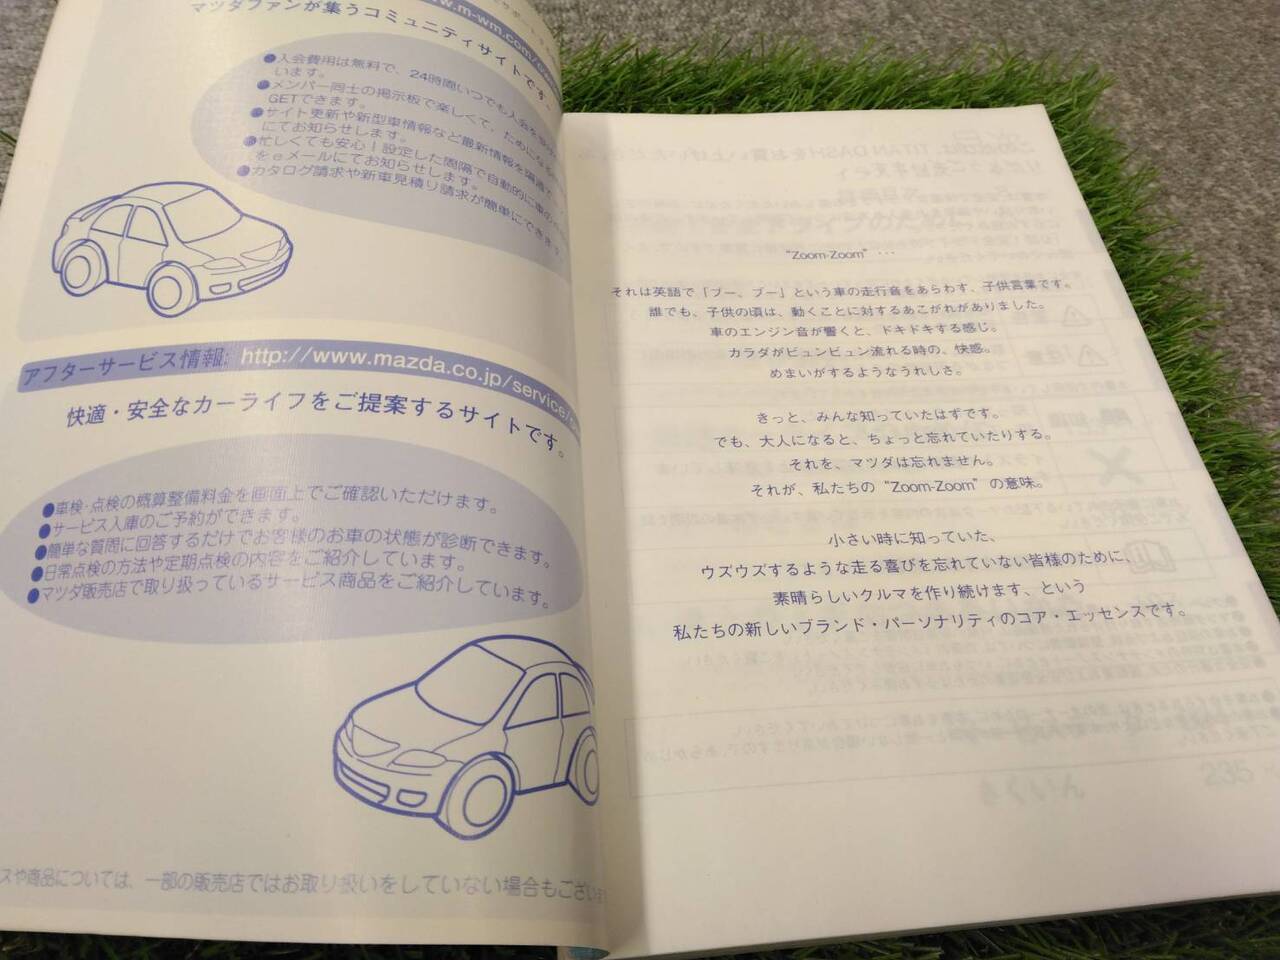 www.m-wm.com/
マツダファンが集うコミュニティサイトです。
●入会費用は無料で、24時間いつでも入会を
います。
●メンバー同士の掲示板で楽しくて、ためになる
GETできます。
●サイト更新や新型車情報など最新情報を
にてお知らせします。
●忙しくても安心！設定した間隔で自動的に車の
をeメールにてお知らせします。
●カタログ請求や新車見積り請求が簡単にできます。
アフターサービス情報: http://www.mazda.co.jp/service/
快適・安全なカーライフをご提案するサイトです。
●車検・点検の概算整備料金を画面上でご確認いただけます。
●サービス入庫のご予約ができます。
●簡単な質問に回答するだけでお客様のお車の状態が診断できます。
●日常点検の方法や定期点検の内容をご紹介しています。
●マツダ販売店で取り扱っているサービス商品をご紹介しています。
スや商品については、一部の販売店ではお取り扱いをしていない場合もござい
“Zoom-Zoom”・・・
それは英語で「ブー、ブー」という車の走行音をあらわす、子供言葉です。
誰でも、子供の頃は、動くことに対するあこがれがありました。
車のエンジン音が響くと、ドキドキする感じ。
カラダがビュンビュン流れる時の、快感。
めまいがするようなうれしさ。
きっと、みんな知っていたはずです。
でも、大人になると、ちょっと忘れていたりする。
それを、マツダは忘れません。
それが、私たちの“Zoom-Zoom”の意味。
小さい時に知っていた、
ウズウズするような走る喜びを忘れていない皆様のために、
素晴らしいクルマを作り続けます、という
私たちの新しいブランド・パーソナリティのコア・エッセンスです。